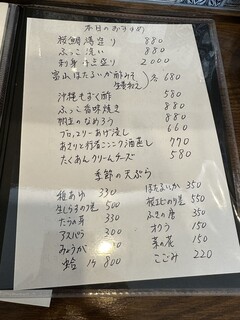 本日のおすすめ
桜鯛薄造り 880
ふっこ洗い 880
刺身 盛り 2000
富山ほたるいか酢みそ 各680
生姜和え
沖縄もずく酢 580
ふっこ香味焼き 880
帆立のなめろう 880
ブロッコリーあげ浸し 660
あさりと行者ニンニク酒蒸し 770
たくあんクリームチーズ 580
季節の天ぷら
稚あゆ 330
生しらすのり巻 500
たらの芽 330
アスパラ 300
みょうが
蛤 1ケ 800
ほたるいか 350
桜エビのり巻 550
ふきの唐 350
オクラ 150
菜の花 150
こごみ 220